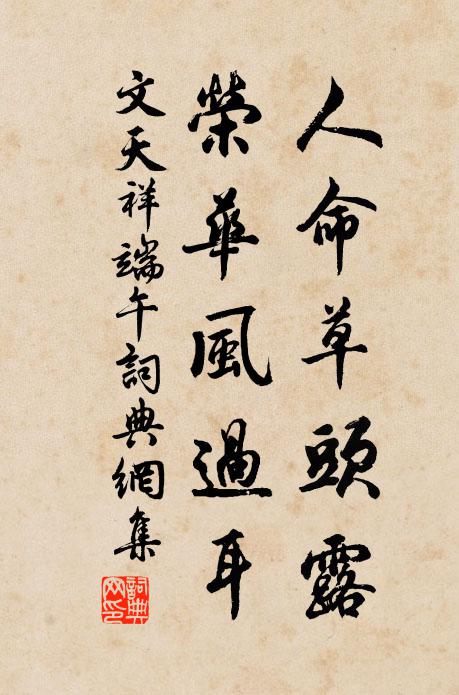 人命草頭露
榮華風過耳
文天祥端午詞典網集
詞典網印